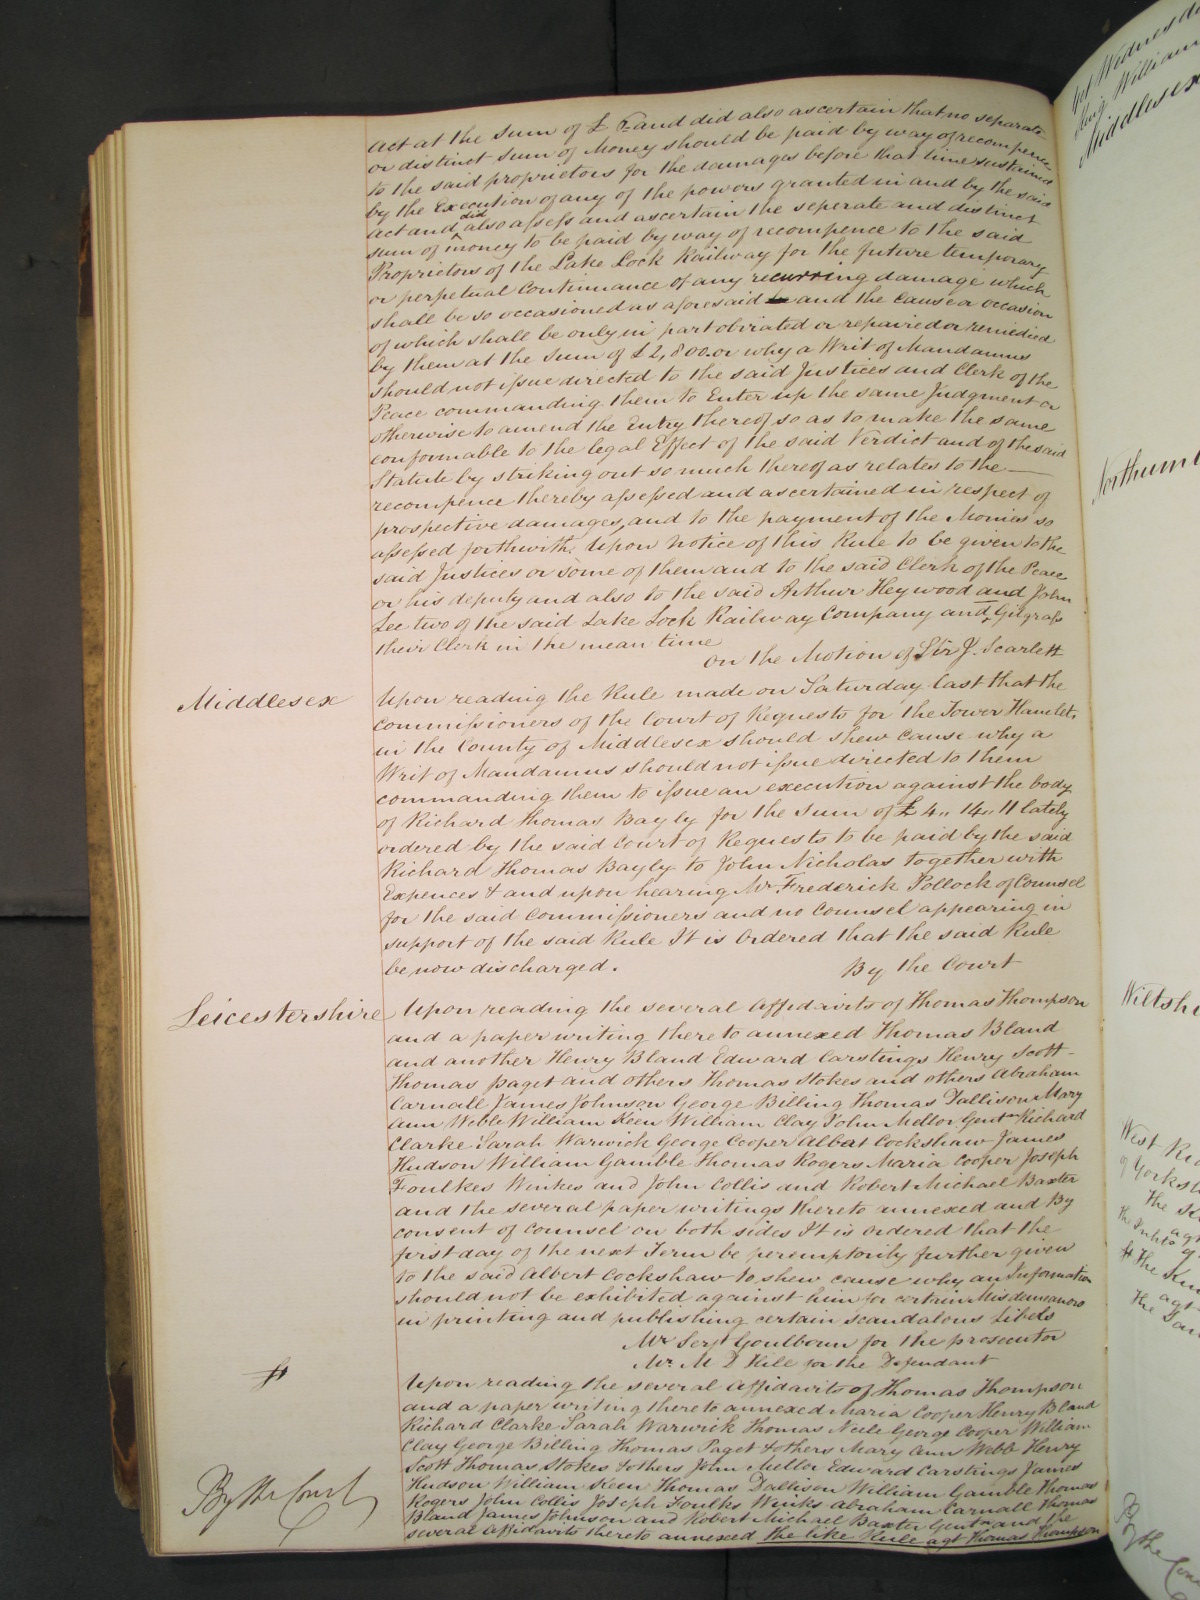 act at the Sum of £ 5 and did also ascertain that no separate
or distinct Sum of Money should be paid by way of recompence
to the said proprietors for the damages before that time sustained
by the Execution of any of the powers granted in and by the said
act and did also assess and ascertain the seperate and distinct
sum of money to be paid by way of recompence to the said
Proprietors of the Lake Lock Railway for the future temporary
or perpetual Continuance of any recurring damage which
shall be so occasioned as aforesaid and the Cause or occasion
of which shall be only in part obviated or repaired or remedied
by them at the Sum of £2,800. or why a Writ of Mandamus
should not issue directed to the said Justices and Clerk of the
Peace commanding them to Enter up the same Judgment or
otherwise to amend the Entry thereof so as to make the same
conformable to the legal Effect of the said Verdict and of the said
Statute by striking out so much thereof as relates to the
recompence thereby assessed and ascertained in respect of
prospective damages, and to the payment of the Monies so
assessed forthwith. Upon notice of this Rule to be given to the
said Justices or some of them and to the said Clerk of the Peace
or his deputy and also to the said Arthur Heywood and John
Lee two of the said Lake Lock Railway Company and Gilgrass
their Clerk in the mean time
On the Motion of Sir J. Scarlett
Middlesex
Upon reading the Rule made on Saturday last that the
Commissioners of the Court of Requests for the Tower Hamlets
in the County of Middlesex should shew Cause why a
Writ of Mandamus should not issue directed to them
commanding them to issue an execution against the body
of Richard Thomas Bayly for the Sum of £4,, 14,, 11 lately
ordered by the said Court of Requests to be paid by the said
Richard Thomas Bayly to John Nicholas together with
Expences & and upon hearing Mr. Frederick Pollock of Counsel
for the said Commissioners and no Counsel appearing in
support of the said Rule It is Ordered that the said Rule
be now discharged.
By the Court
Leicestershire
Upon reading the several Affidavits of Thomas Thompson
and a paper writing thereto annexed Thomas Bland
and another Henry Bland Edward Carstings Henry Scott
Thomas Paget and others Thomas Stokes and others Abraham
Carnall James Johnson George Billing Thomas Dallison Mary
Ann Webb William Keen William Clay John Mellor Gentn Richard
Clarke Sarah Warwick George Cooper Albert Cockshaw James
Hudson William Gamble Thomas Rogers Maria Cooper Joseph
Foulkes Winkes and John Collis and Robert Michael Baxter
and the several paper writings thereto annexed and By
consent of Counsel on both sides It is ordered that the
first day of the next Term be peremptorily further given
to the said Albert Cockshaw to shew cause why an Information
should not be exhibited against him for certain Misdemeanors
in printing and publishing certain scandalous Libels
Mr. Serjt Goulbourn for the prosecutor
Mr. M D Hile for the Defendant
Upon reading the several Affidavits of Thomas Thompson
and a paper writing thereto annexed Maria Cooper Henry Bland
Richard Clarke Sarah Warwick Thomas Neele George Cooper William
Clay George Billing Thomas Paget & others Mary Ann Webb Henry
Scott Thomas Stokes & others John Mellor Edward Carstings James
Hudson William Keen Thomas Dallison William Gamble Thomas
Rogers John Collis Joseph Foulks Winks Abraham Carnall Thomas
Bland James Johnson and Robert Michael Baxter Gentn and the
several Affidavits thereto annexed the like Rule agt Thomas Thompson
By the Court
Middlesex
Northum
Wiltshi
West Rid
of Yorksh
By the Cou